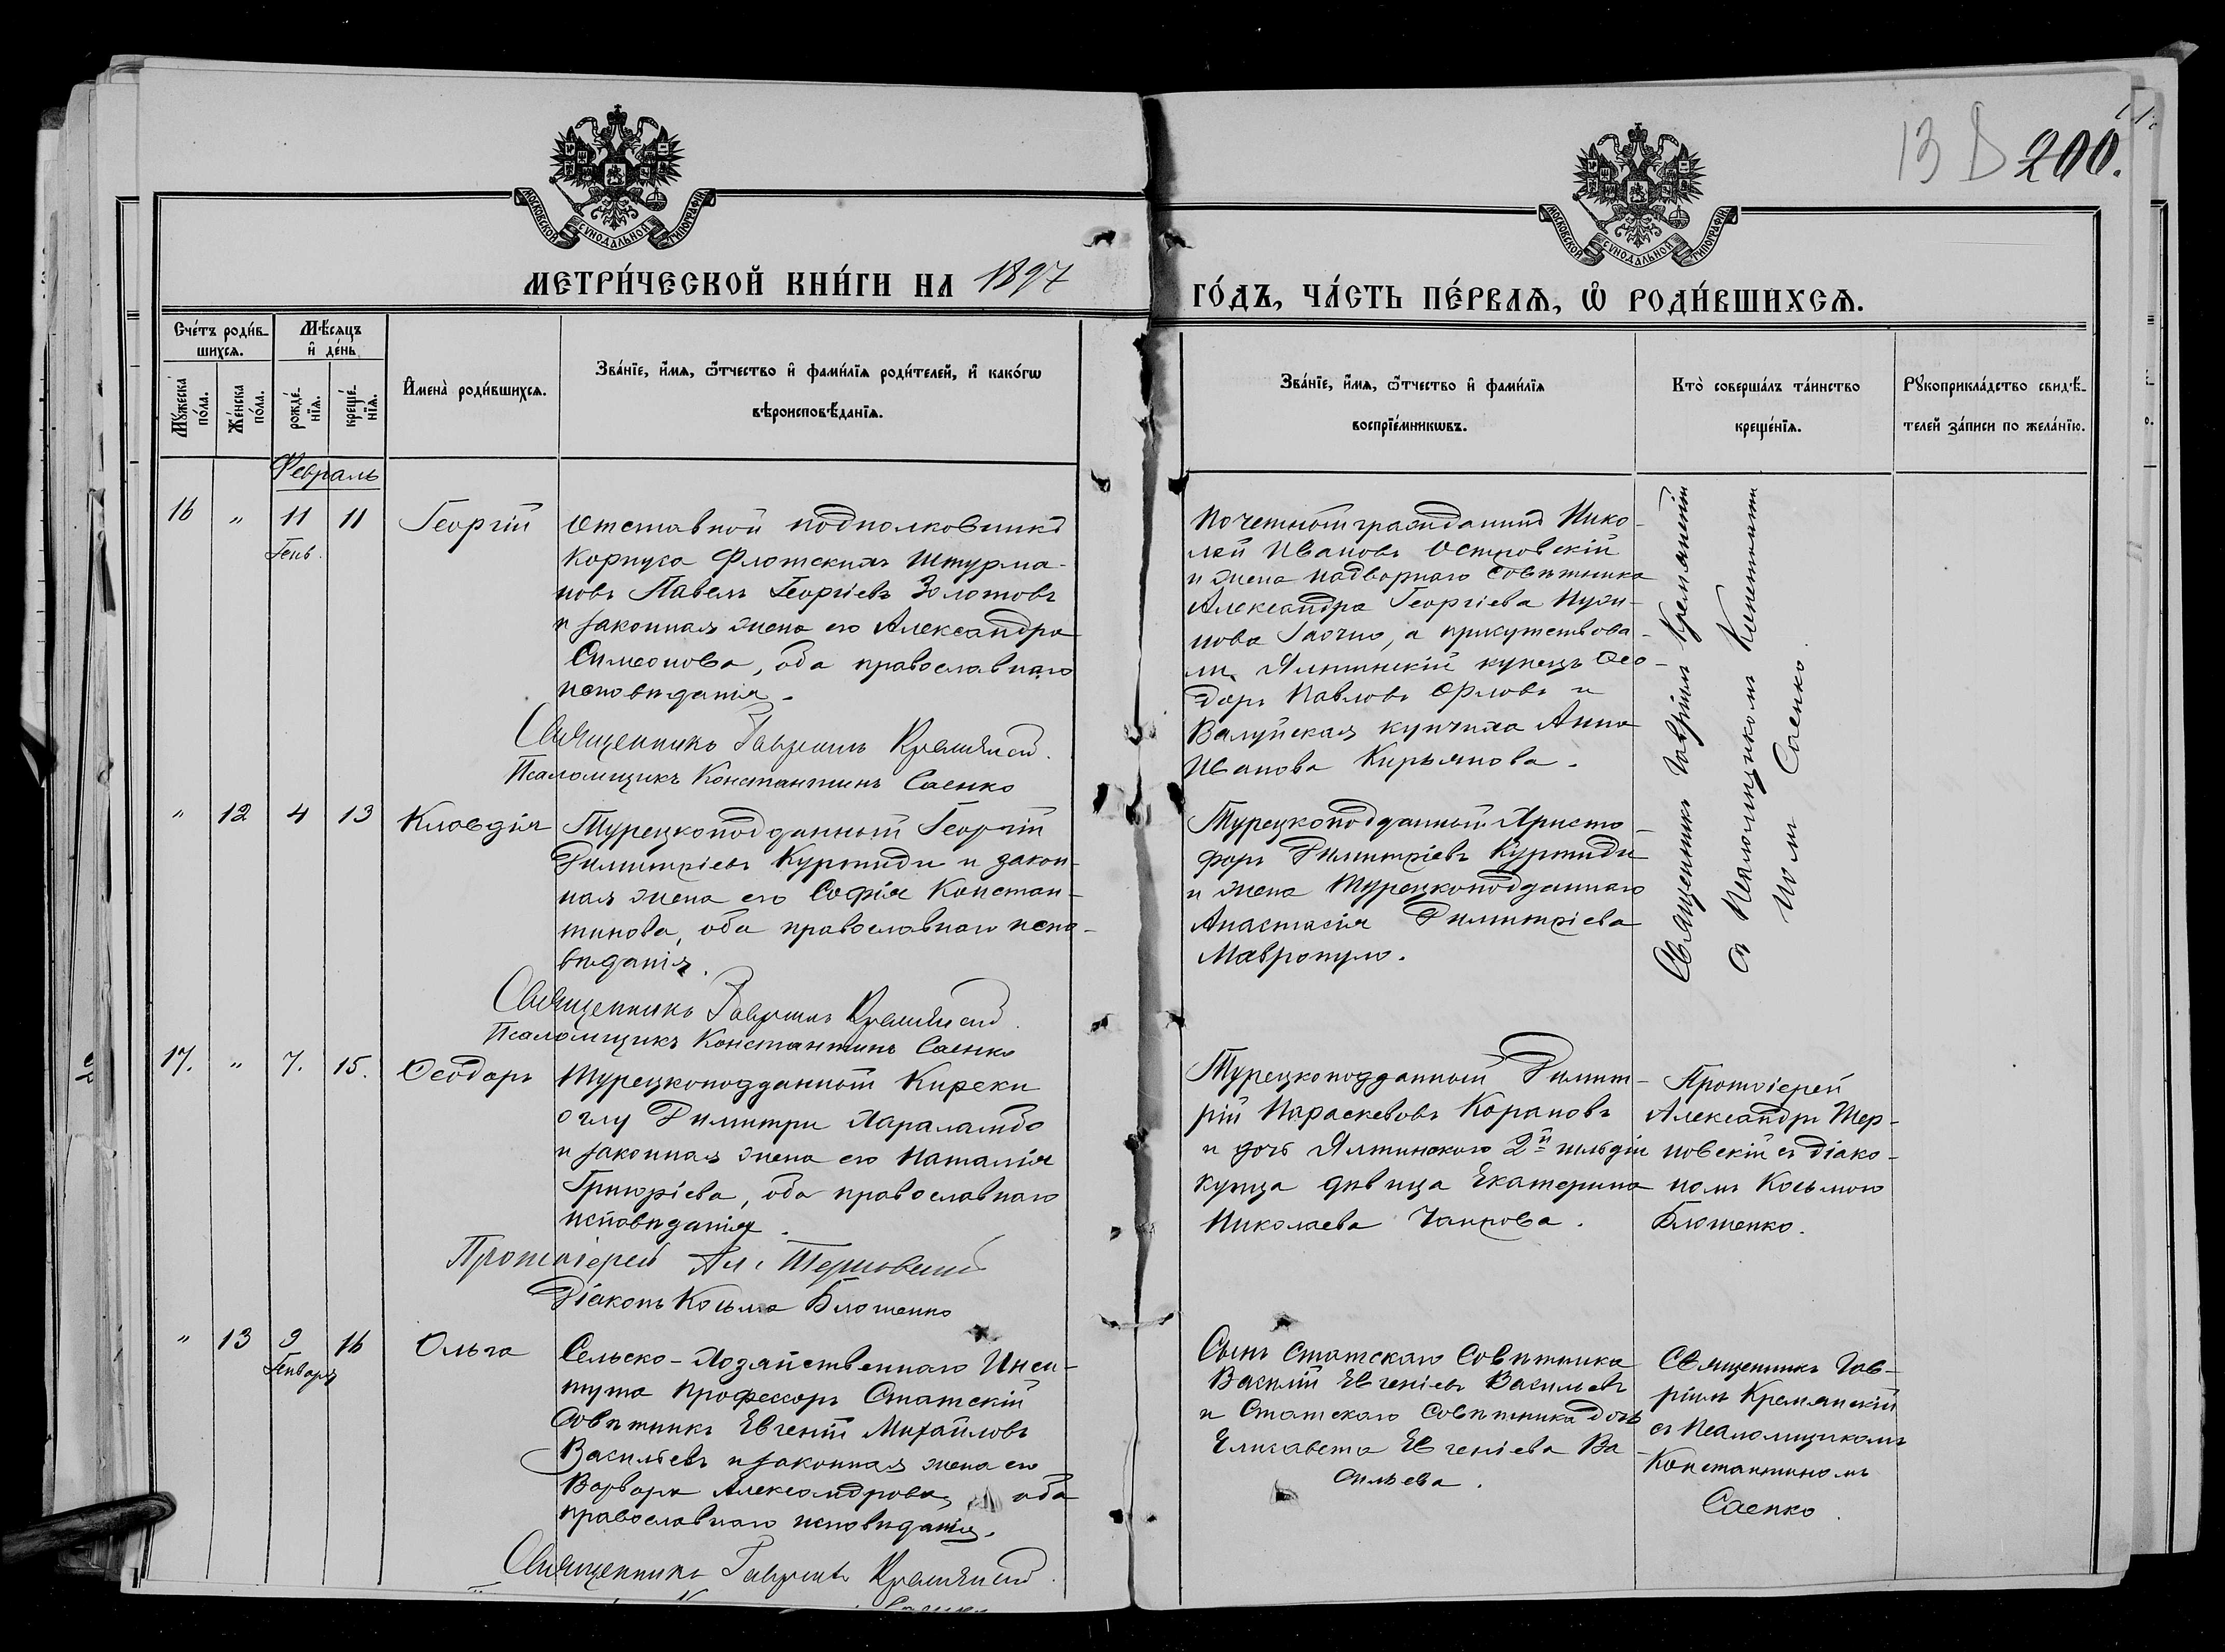 13 D 200.
МОСКОВСКОЙ СУНОДАЛЬНОЙ ТИПОГРАФІИ
МОСКОВСКОЙ СУНОДАЛЬНОЙ ТИПОГРАФІИ
МЕТРИ́ЧЕСКОЙ КНИ́ГИ НА 1897
ГО́ДЪ, ЧА́СТЬ ПЕ́РВАѦ, Ѡ҆ РОДИ́ВШИХСѦ.
Сче́тъ роди́в-
шихсѧ.
Мѣ́сѧцъ
и҆ де́нь
Мꙋ́жеска
по́ла.
Же́нска
по́ла.
рожде́-
нїѧ.
креще́-
нїѧ.
И҆мена̀ роди́вшихсѧ.
Зва́нїе, и҆́мѧ, ѻ҆́тчество и҆ фами́лїѧ роди́телей, и҆ како́гѡ
вѣроисповѣ́данїѧ.
Зва́нїе, и҆́мѧ, ѻ҆́тчество и҆ фами́лїѧ
воспрїе́мникѡвъ.
Кто̀ соверша́лъ та́инство
креще́нїѧ.
Рꙋкоприкла́дство свидѣ́-
телей за́писи по жела́нїю.
Февраль
16 " 11 11 Георгій
Генв.
Отставной подполковникъ
Корпуса Флотскихъ Штурма-
новъ Павелъ Георгіевъ Золотовъ
и законная жена его Александра
Симеонова, оба православнаго
исповѣданія.
Священникъ Гавріилъ Кремянскій.
Псаломщикъ Константинъ Саенко
Почетный гражданинъ Нико-
лай Ивановъ Островскій
и жена надворнаго Совѣтника
Александра Георгіева
нова заочно, а присутствова-
ли Ялтинскій купецъ Ѳео-
доръ Павловъ Орловъ и
Валуйская купчиха Анна
Иванова Кирьянова.
Священникъ Гавріилъ Кремянскій
съ Псаломщикомъ Константи
номъ Саенко.
" 12 4 13 Клавдія
Турецкоподданный Георгій
Димитріевъ Куртиди и закон-
ная жена его Софія Констан-
тинова, оба православнаго испо-
вѣданія.
Священникъ Гавріилъ Кремянскій
Псаломщикъ Константинъ Саенко
Турецкоподданный Христо-
форъ Димитріевъ Куртиди
и жена Турецкоподданнаго
Анастасія Димитріева
Мавропуло.
17. " 7. 15. Ѳеодоръ
Турецкоподданный Киреки
оглу Димитри Харалампо
и законная жена его Наталія
Григоріева, оба православнаго
исповѣданія.
Протоіерей Ал. Терновскій
Діаконъ Косьма Блошенко
Турецкоподданный Димит-
рій Параскевовъ Карановъ
и дочь Ялтинскаго 2й гильдіи
купца дѣвица Екатерина
Николаева Чаирова.
Протоіерей
Александръ Тер-
новскій съ діако-
номъ Косьмою
Блошенко.
" 13 9 16 Ольга
Генваря
Сельско-Хозяйственнаго Инсти-
тута Профессоръ Статскій
Совѣтникъ Евгеній Михайловъ
Васильевъ и законная жена его
Варвара Александрова, оба
православнаго исповѣданія.
Священникъ Гавріилъ Кремянскій.
Сынъ Статскаго Совѣтника
Василій Евгеніевъ Васильевъ
и Статскаго Совѣтника дочь
Елисавета Евгеніева Ва-
сильева.
Священникъ Гав-
ріилъ Кремянскій
съ Псаломщикомъ
Константиномъ
Саенко.